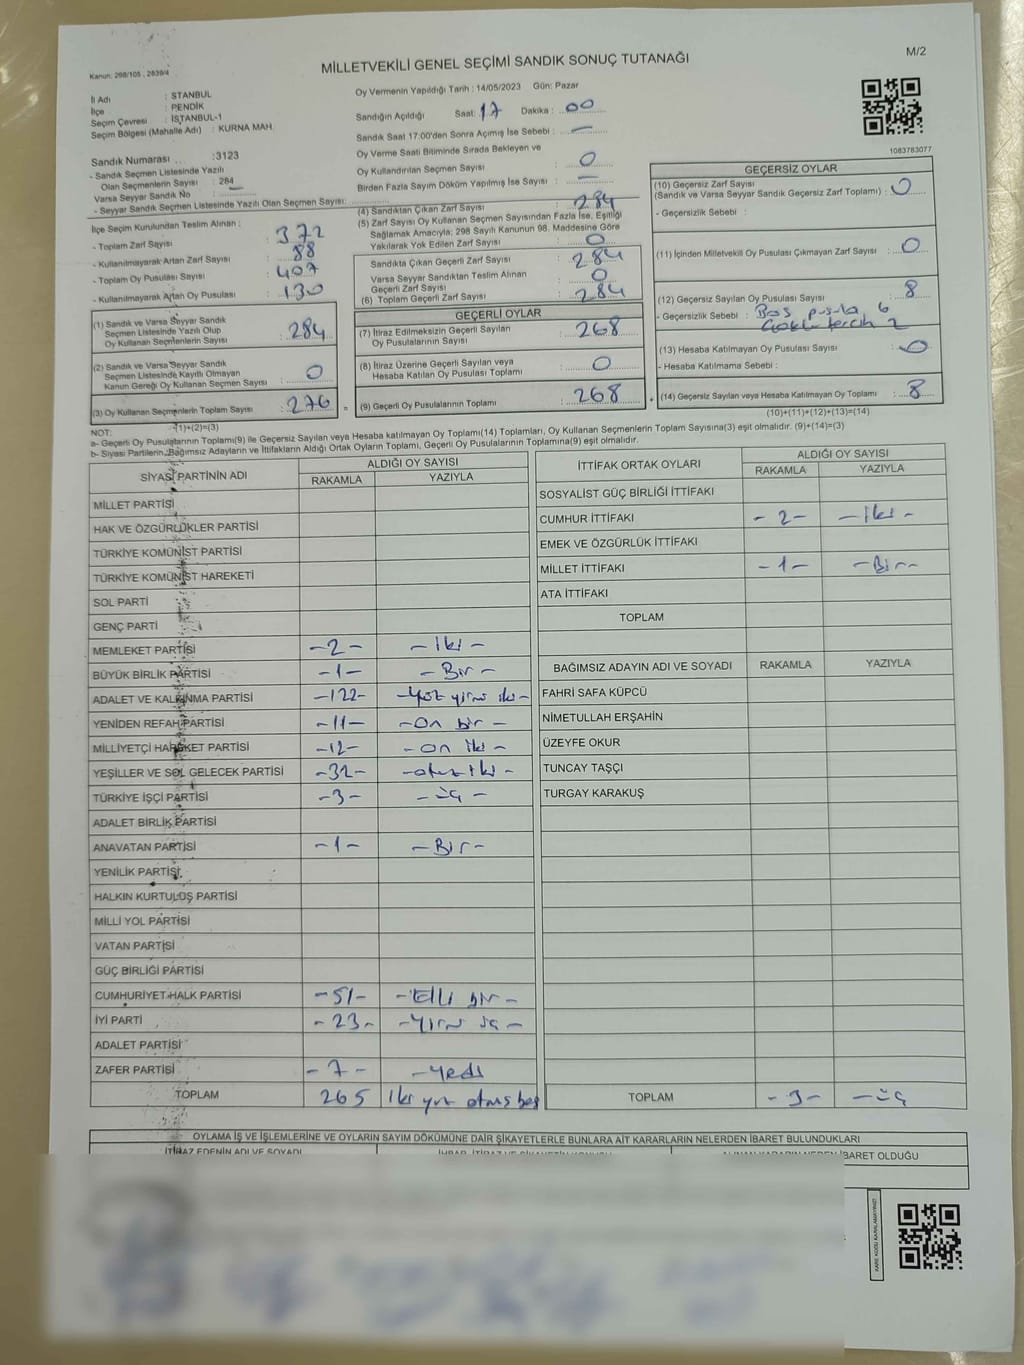 M/2
MİLLETVEKİLİ GENEL SEÇİMİ SANDIK SONUÇ TUTANAĞI
Kanun: 298/105 , 2839/4
İl Adı : STANBUL
İlçe : PENDİK
Seçim Çevresi : İSTANBUL-1
Seçim Bölgesi (Mahalle Adı) : KURNA MAH.
Sandık Numarası :3123
- Sandık Seçmen Listesinde Yazılı
Olan Seçmenlerin Sayısı : 284
Varsa Seyyar Sandık No :
- Seyyar Sandık Seçmen Listesinde Yazılı Olan Seçmen Sayısı:
Oy Vermenin Yapıldığı Tarih : 14/05/2023 Gün: Pazar
Sandığın Açıldığı Saat: 17 Dakika : 00
Sandık Saat 17:00'den Sonra Açımış İse Sebebi : —
Oy Verme Saati Bitiminde Sırada Bekleyen ve
Oy Kullandırılan Seçmen Sayısı : 0
Birden Fazla Sayım Döküm Yapılmış İse Sayısı : —
1083783077
İlçe Seçim Kurulundan Teslim Alınan ;
- Toplam Zarf Sayısı : 372
- Kullanılmayarak Artan Zarf Sayısı : 88
- Toplam Oy Pusulası Sayısı : 407
- Kullanılmayarak Artan Oy Pusulası : 130
(1) Sandık ve Varsa Seyyar Sandık
Seçmen Listesinde Yazılı Olup
Oy Kullanan Seçmenlerin Sayısı : 284
(2) Sandık ve Varsa Seyyar Sandık
Seçmen Listesinde Kayıtlı Olmayan
Kanun Gereği Oy Kullanan Seçmen Sayısı : 0
(3) Oy Kullanan Seçmenlerin Toplam Sayısı : 276
(1)+(2)=(3)
(4) Sandıktan Çıkan Zarf Sayısı : 284
(5) Zarf Sayısı Oy Kullanan Seçmen Sayısından Fazla İse, Eşitliği
Sağlamak Amacıyla; 298 Sayılı Kanunun 98. Maddesine Göre
Yakılarak Yok Edilen Zarf Sayısı : 0
Sandıkta Çıkan Geçerli Zarf Sayısı : 284
Varsa Seyyar Sandıktan Teslim Alınan
Geçerli Zarf Sayısı : 0
(6) Toplam Geçerli Zarf Sayısı : 284
GEÇERLİ OYLAR
(7) İtiraz Edilmeksizin Geçerli Sayılan
Oy Pusulalarının Sayısı : 268
(8) İtiraz Üzerine Geçerli Sayılan veya
Hesaba Katılan Oy Pusulası Toplamı : 0
(9) Geçerli Oy Pusulalarının Toplamı : 268
GEÇERSİZ OYLAR
(10) Geçersiz Zarf Sayısı
(Sandık ve Varsa Seyyar Sandık Geçersiz Zarf Toplamı) : 0
- Geçersizlik Sebebi :
(11) İçinden Milletvekili Oy Pusulası Çıkmayan Zarf Sayısı : 0
(12) Geçersiz Sayılan Oy Pusulası Sayısı : 8
- Geçersizlik Sebebi : Boş pusula 6
tercih 2
(13) Hesaba Katılmayan Oy Pusulası Sayısı : 0
- Hesaba Katılmama Sebebi :
(14) Geçersiz Sayılan veya Hesaba Katılmayan Oy Toplamı : 8
(10)+(11)+(12)+(13)=(14)
NOT:
a- Geçerli Oy Pusulalarının Toplamı(9) ile Geçersiz Sayılan veya Hesaba katılmayan Oy Toplamı(14) Toplamları, Oy Kullanan Seçmenlerin Toplam Sayısına(3) eşit olmalıdır. (9)+(14)=(3)
b- Siyasi Partilerin, Bağımsız Adayların ve İttifakların Aldığı Ortak Oyların Toplamı, Geçerli Oy Pusulalarının Toplamına(9) eşit olmalıdır.
SİYASİ PARTİNİN ADI ALDIĞI OY SAYISI
RAKAMLA YAZIYLA
MİLLET PARTİSİ
HAK VE ÖZGÜRLÜKLER PARTİSİ
TÜRKİYE KOMÜNİST PARTİSİ
TÜRKİYE KOMÜNİST HAREKETİ
SOL PARTİ
GENÇ PARTİ
MEMLEKET PARTİSİ -2- - İki -
BÜYÜK BİRLİK PARTİSİ -1- - Bir -
ADALET VE KALKINMA PARTİSİ -122- -yüz yirmi iki-
YENİDEN REFAH PARTİSİ -11- -On bir -
MİLLİYETÇİ HAREKET PARTİSİ -12- - on iki -
YEŞİLLER VE SOL GELECEK PARTİSİ -32- -otuz iki -
TÜRKİYE İŞÇİ PARTİSİ -3- - üç -
ADALET BİRLİK PARTİSİ
ANAVATAN PARTİSİ -1- - Bir -
YENİLİK PARTİSİ
HALKIN KURTULUŞ PARTİSİ
MİLLİ YOL PARTİSİ
VATAN PARTİSİ
GÜÇ BİRLİĞİ PARTİSİ
CUMHURİYET HALK PARTİSİ -51- - Elli bir -
İYİ PARTİ -23- -Yirmi üç -
ADALET PARTİSİ
ZAFER PARTİSİ -7- -Yedi
TOPLAM 265 İki yüz otmış beş
İTTİFAK ORTAK OYLARI ALDIĞI OY SAYISI
RAKAMLA YAZIYLA
SOSYALİST GÜÇ BİRLİĞİ İTTİFAKI
CUMHUR İTTİFAKI -2- - iki -
EMEK VE ÖZGÜRLÜK İTTİFAKI
MİLLET İTTİFAKI -1- -Bir-
ATA İTTİFAKI
TOPLAM
BAĞIMSIZ ADAYIN ADI VE SOYADI RAKAMLA YAZIYLA
FAHRİ SAFA KÜPCÜ
NİMETULLAH ERŞAHİN
ÜZEYFE OKUR
TUNCAY TAŞÇI
TURGAY KARAKUŞ
TOPLAM -3- - üç
OYLAMA İŞ VE İŞLEMLERİNE VE OYLARIN SAYIM DÖKÜMÜNE DAİR ŞİKAYETLERLE BUNLARA AİT KARARLARIN NELERDEN İBARET BULUNDUKLARI
İTİRAZ EDENİN ADI VE SOYADI İBARET OLDUĞU
KARE KODU KARALAMAYINIZ!